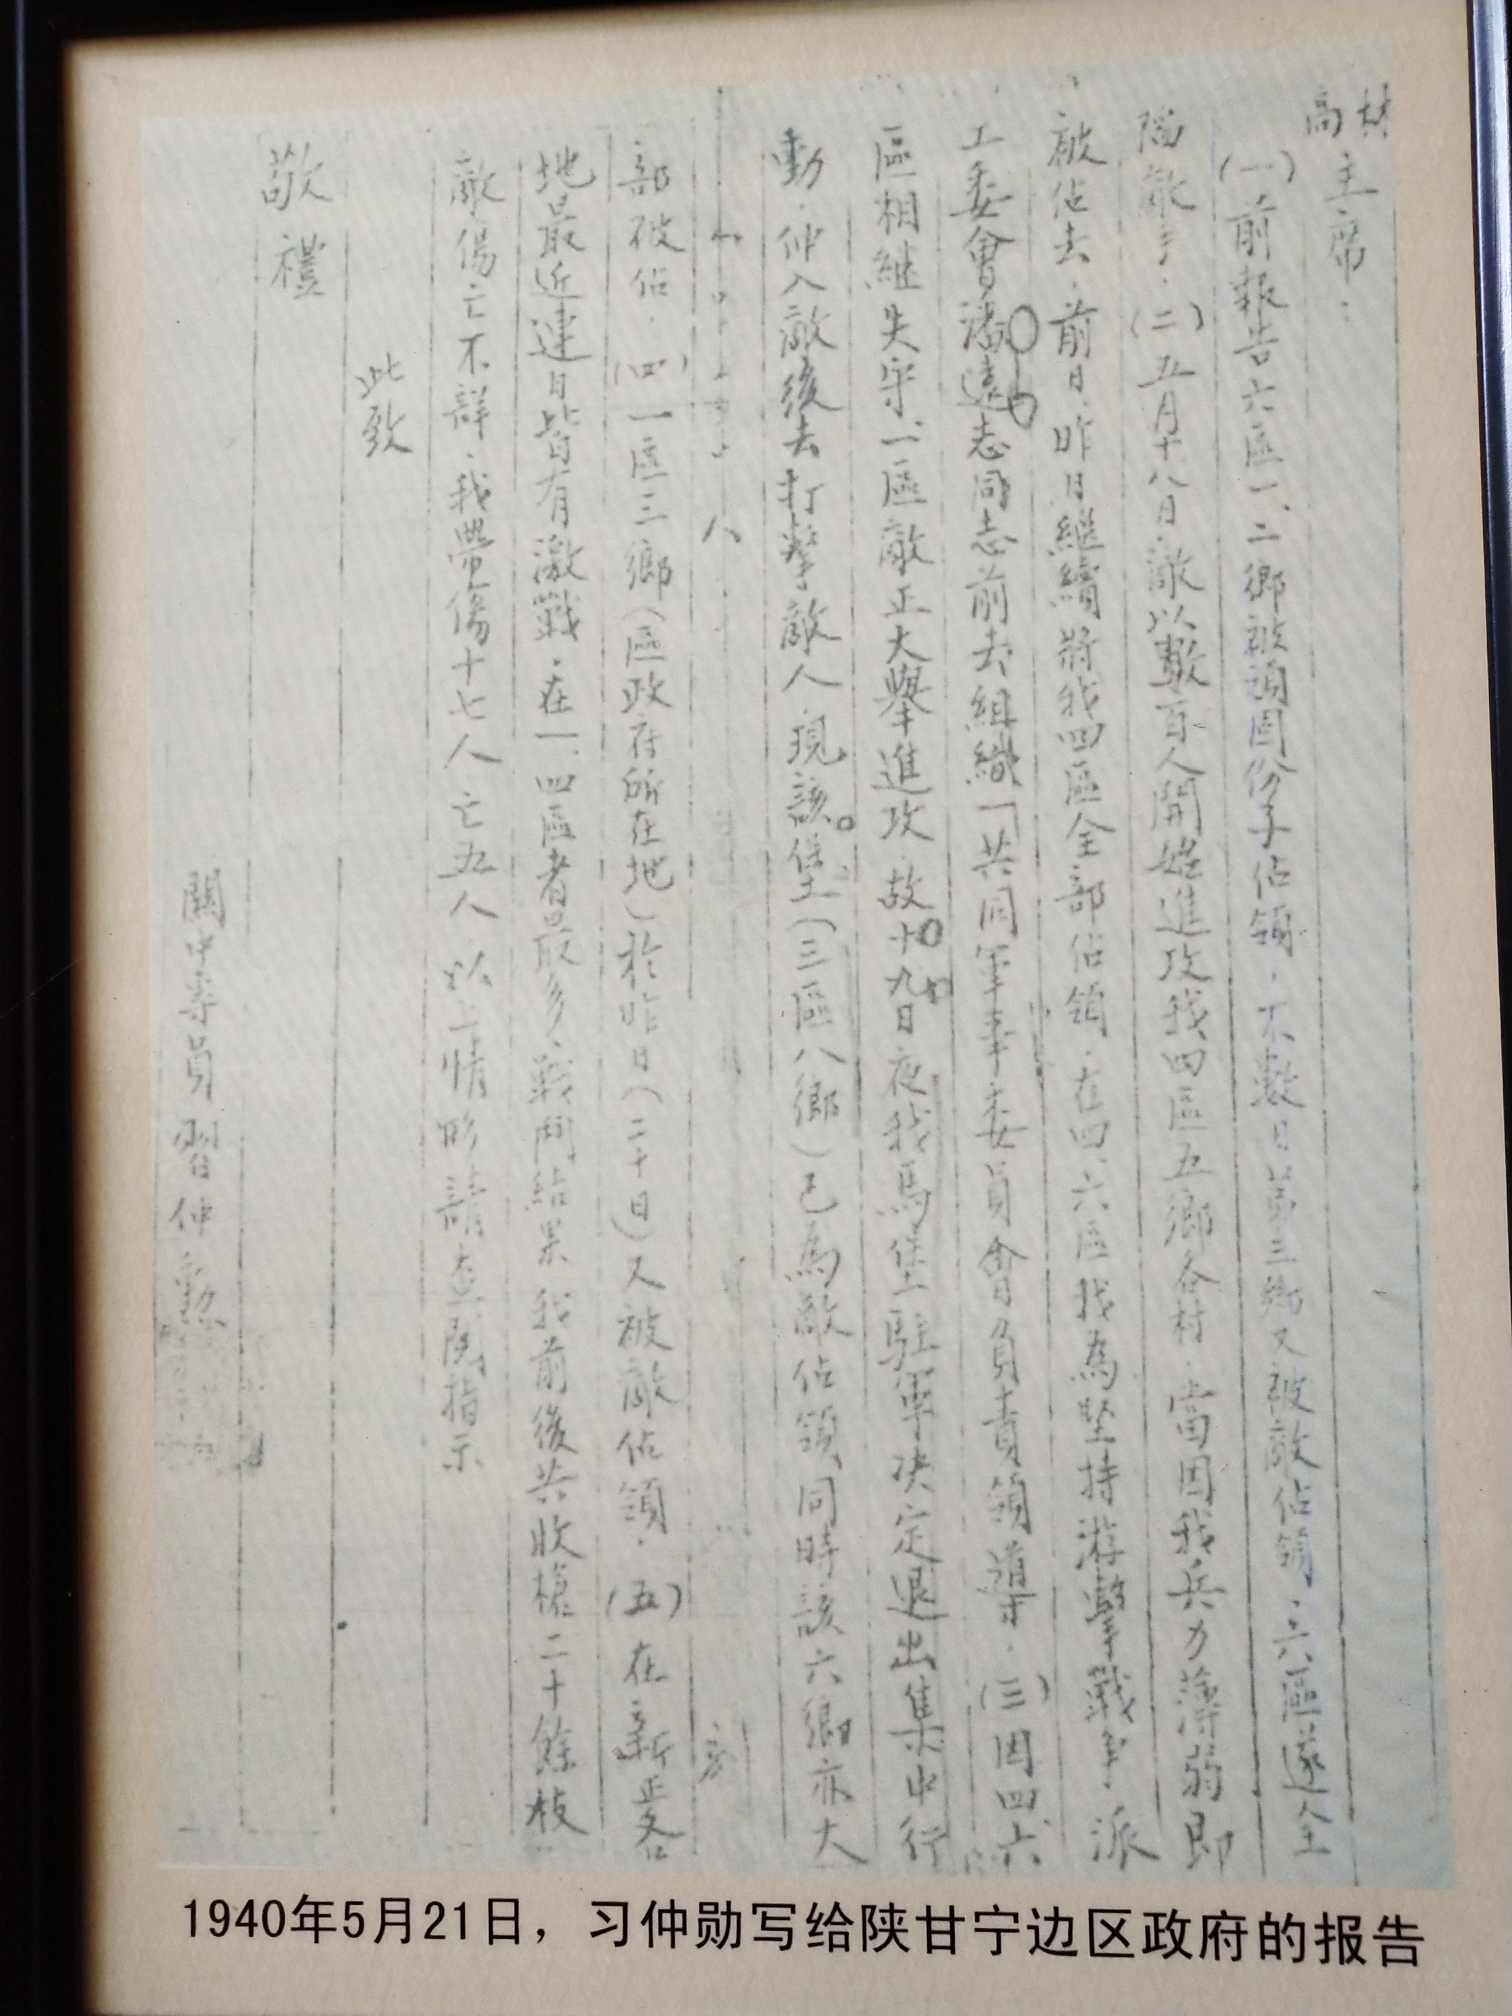 林
高
主席：
(一)前報告六區一、二鄉被頑固份子佔領，不數日第三鄉又被敵佔領，六區遂全
陷敵手．(二)五月十八日敵以數百人開始進攻我四區五鄉各村．當因我兵力薄弱即
被佔去．前日昨日繼續將我四區全部佔領．在四、六區我為堅持游擊戰爭派
工委會潘遠志同志前去組織「共同軍事委員會負責領導．(三)因四、六
區相繼失守、一區敵正大舉進攻．故十九日夜我馬堡駐軍決定退出集中行
動．伸入敵後去打擊敵人．現該堡(三區八鄉)已為敵佔領同時該六鄉亦大
部被佔．(四)一區三鄉(區政府所在地)於昨日(二十日)又被敵佔領．(五)在新正各
地最近連日皆有激戰．在一、四區者最多、戰鬥結果我前後共收槍二十餘枝
敵傷亡不詳．我帶傷十七人亡五人以上情形請查閱指示
此致
敬禮
關中專員習仲勳
1940年5月21日，习仲勋写给陕甘宁边区政府的报告